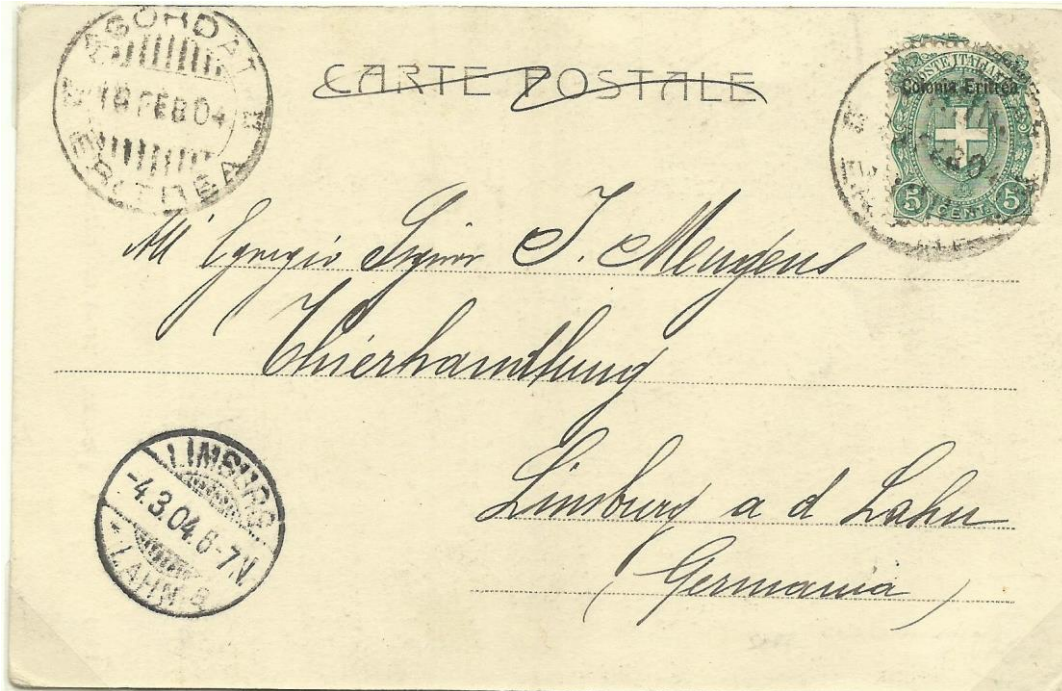 AGORDAT
18 FEB 04
ERITREA
CARTE POSTALE
POSTE ITALIANE
Colonia Eritrea
5 CENT. 5
All' Egregio Signor J. Mengens
Thierhandlung
Limburg a d Lahn
(Germania)
LIMBURG
-4.3.04.6-7.V.
LAHN